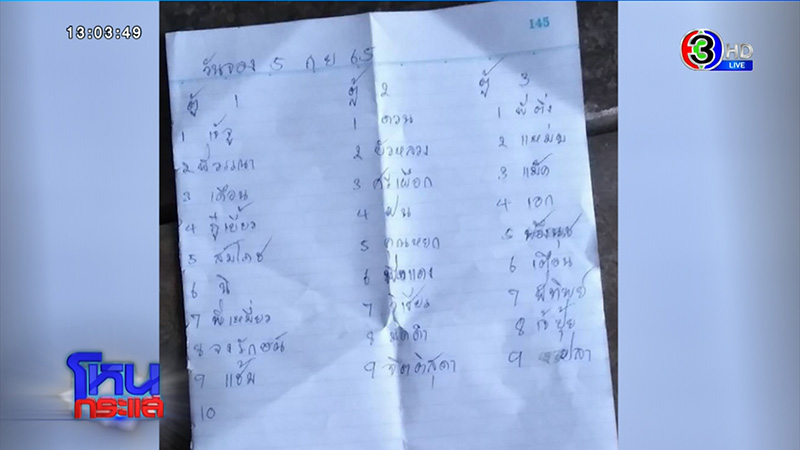 13:03:49
145
3 HD
LIVE
วันจอง 5 กย 65
ตู้ 1
1 เจ้จู
2 พี่วรรณา
3 เตือน
4
5 สมโภช
6 นิ
7 พี่เหมี่ยว
8 จงรักษ์
9 แช้ม
10
ตู้ 2
1 ดวน
2 บัวหลวง
3 ศรีเผือก
4 ฝน
5 คุณหยก
6
7
8 มดดำ
9 จิตติสุดา
ตู้ 3
1 พี่ติ่ง
2 แหม่ม
3 แม็ค
4 เอก
5 น้องนุช
6 เตือน
7 พี่ทิพย์
8 เจ้ปุ้ย
9 ปลา
โหนกระแส